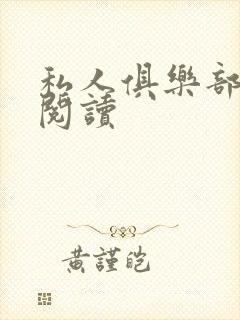 私人俱樂部
閱讀
黃謹皑